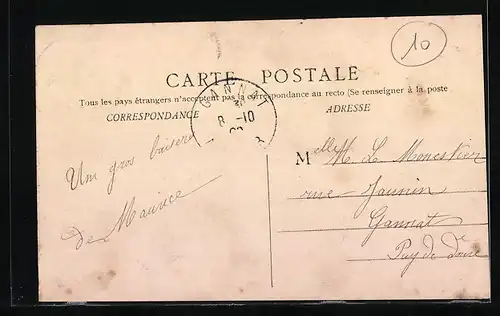 10
CARTE POSTALE
Tous les pays étrangers n'acceptent pas la correspondance au recto (Se renseigner à la poste
CORRESPONDANCE
ADRESSE
GANNAT
8 -10
Un gros baiser
de Maurice
Melle M. Le Monestier
rue
Gannat
Puy de Dôme